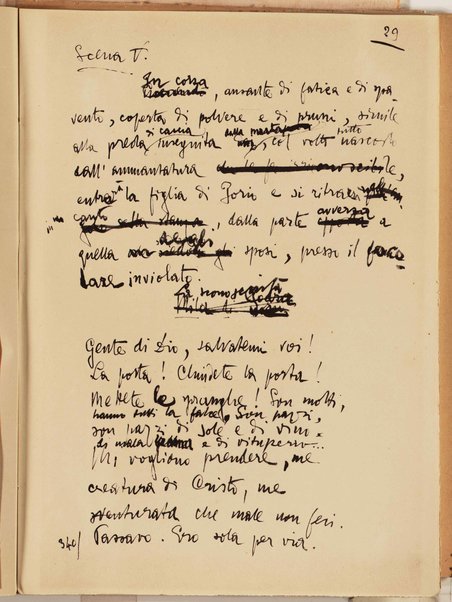 29
Scena V.
In corsa
, ansante di fatica e di spa-
vento, coperta di polvere e di pruni, simile
alla preda di caccia inseguita dalla muta, col volto tutto nascosto
dall'ammantatura
entra la figlia di Jorio e si ritrae
canto, dalla parte avversa a
quella degli sposi, presso il foco-
lare inviolato.
La sconosciuta
Gente di Dio, salvatemi voi!
La porta! Chiudete la porta!
Mettete le spranghe! Son molti,
hanno tutti la falce. Son pazzi,
son pazzi di sole e di vino
di mala e di vituperio...
Mi vogliono prendere, me
creatura di Cristo, me
sventurata che male non feci.
340/ Passavo. Ero sola per via.